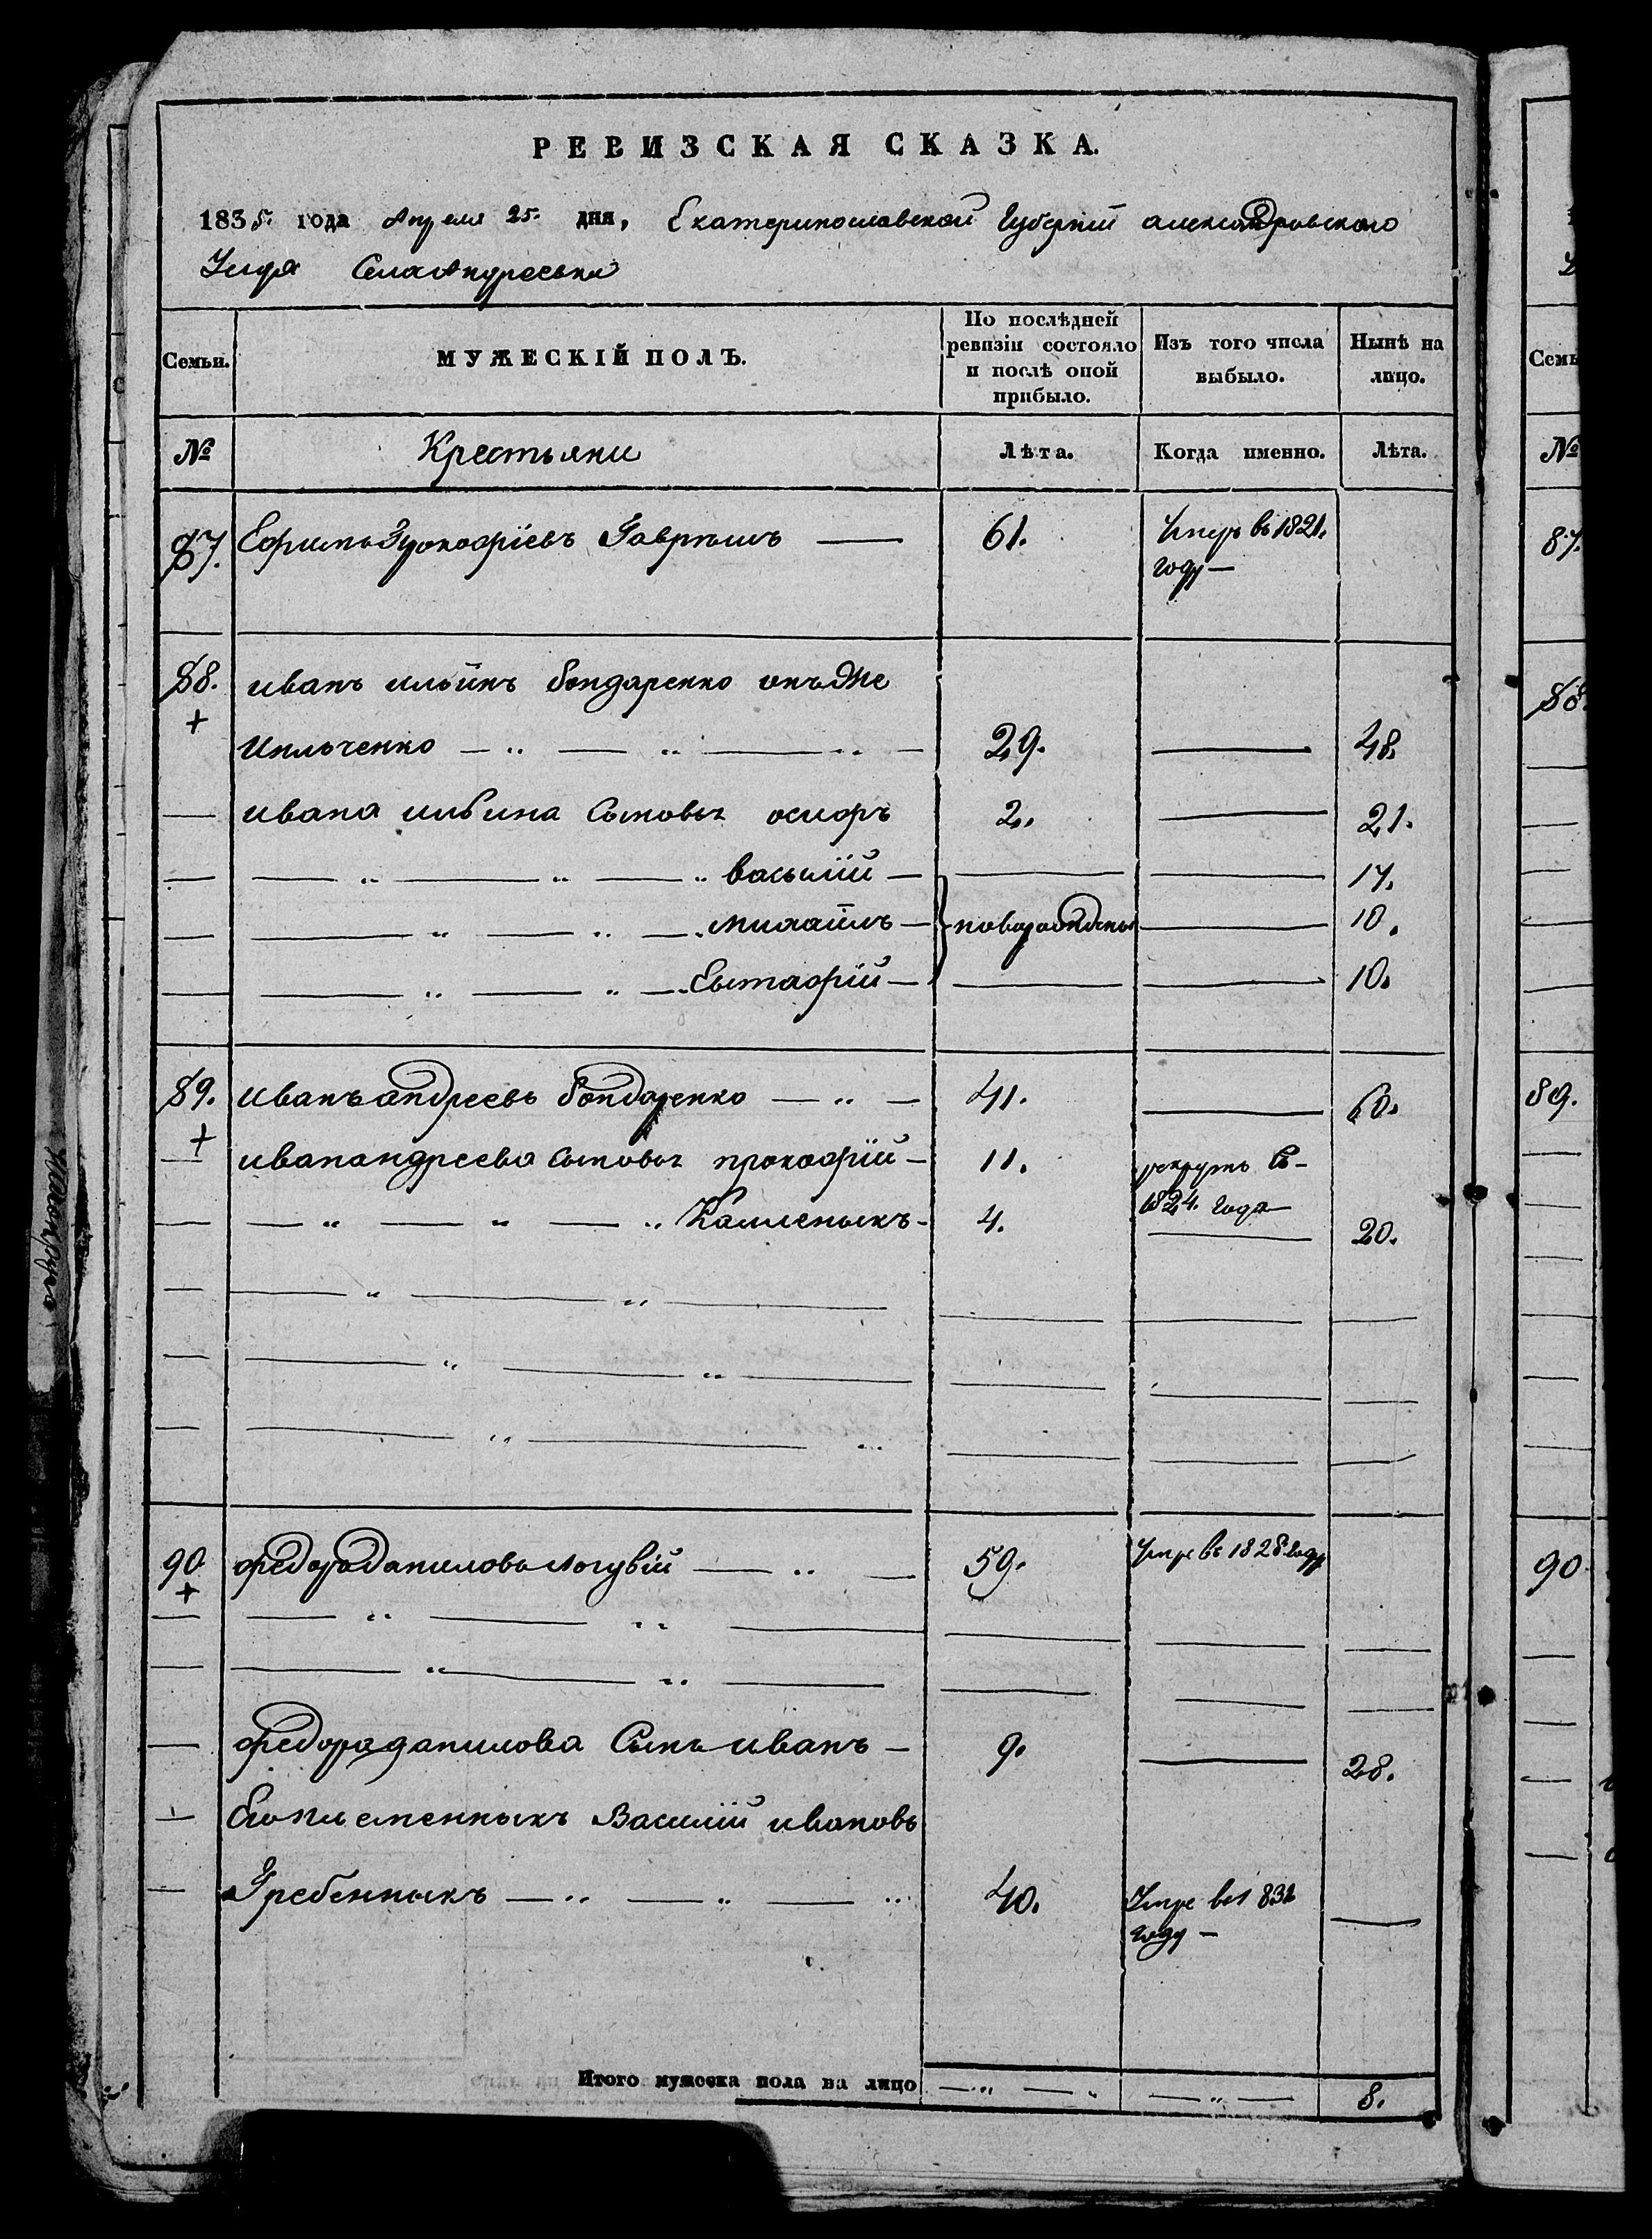 РЕВИЗСКАЯ СКАЗКА.
1835. года Апреля 25. дня, Екатеринославской Губернїи александровского
Уезда Села Андреевки
Семьи. МУЖЕСКІЙ ПОЛЪ. По послѣдней ревизіи состояло и послѣ оной прибыло. Изъ того числа выбыло. Нынѣ на лицо.
№ Крестьяни Лѣта. Когда именно. Лѣта.
87. Ефимъ Гаврышъ — 61. Умеръ въ 1821. году —
88. иванъ ильинъ бондаренко онъ же
+ Ильченко — 29. — 48.
— ивана ильина Сыновья осифъ 2. — 21.
— василїй — — — 17.
— михаилъ — новарожденые — 10.
— Евстафїй — — — 10.
89. иванъ андреевъ бондаренко — 41. — 60.
+ иванандреева сыновья прокофїй — 11. рекрутъ съ 1824. года
— Каленыкъ — 4. — 20.
90 федорданиловъ Логувїй — 59. Умре въ 1828 году
+
— федораданилова Сынъ иванъ — 9. — 28.
— Василїй ивановъ
— Гребенныкъ — 40. Умре въ 1832 году — —
Итого мужеска пола на лицо — — 8.
Семь
№
87.
88.
89.
90.